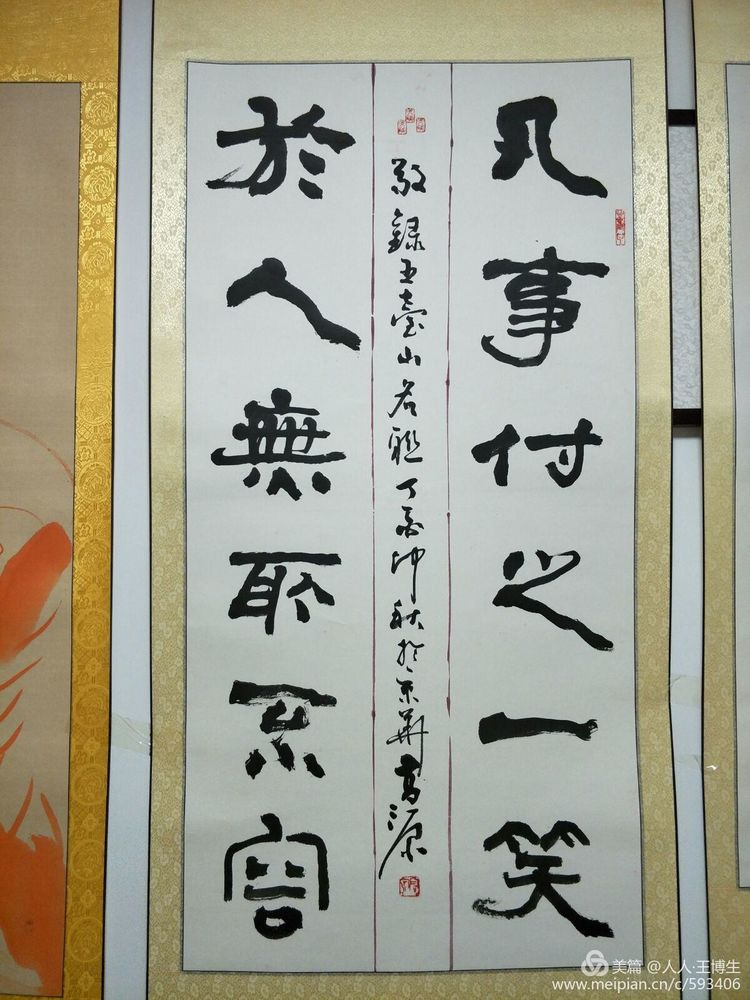 凡事付之一笑
於人無所不容
敬錄五臺山名聯丁酉仲秋於京華高源
美篇 @人人·王博生
www.meipian.cn/c/593406